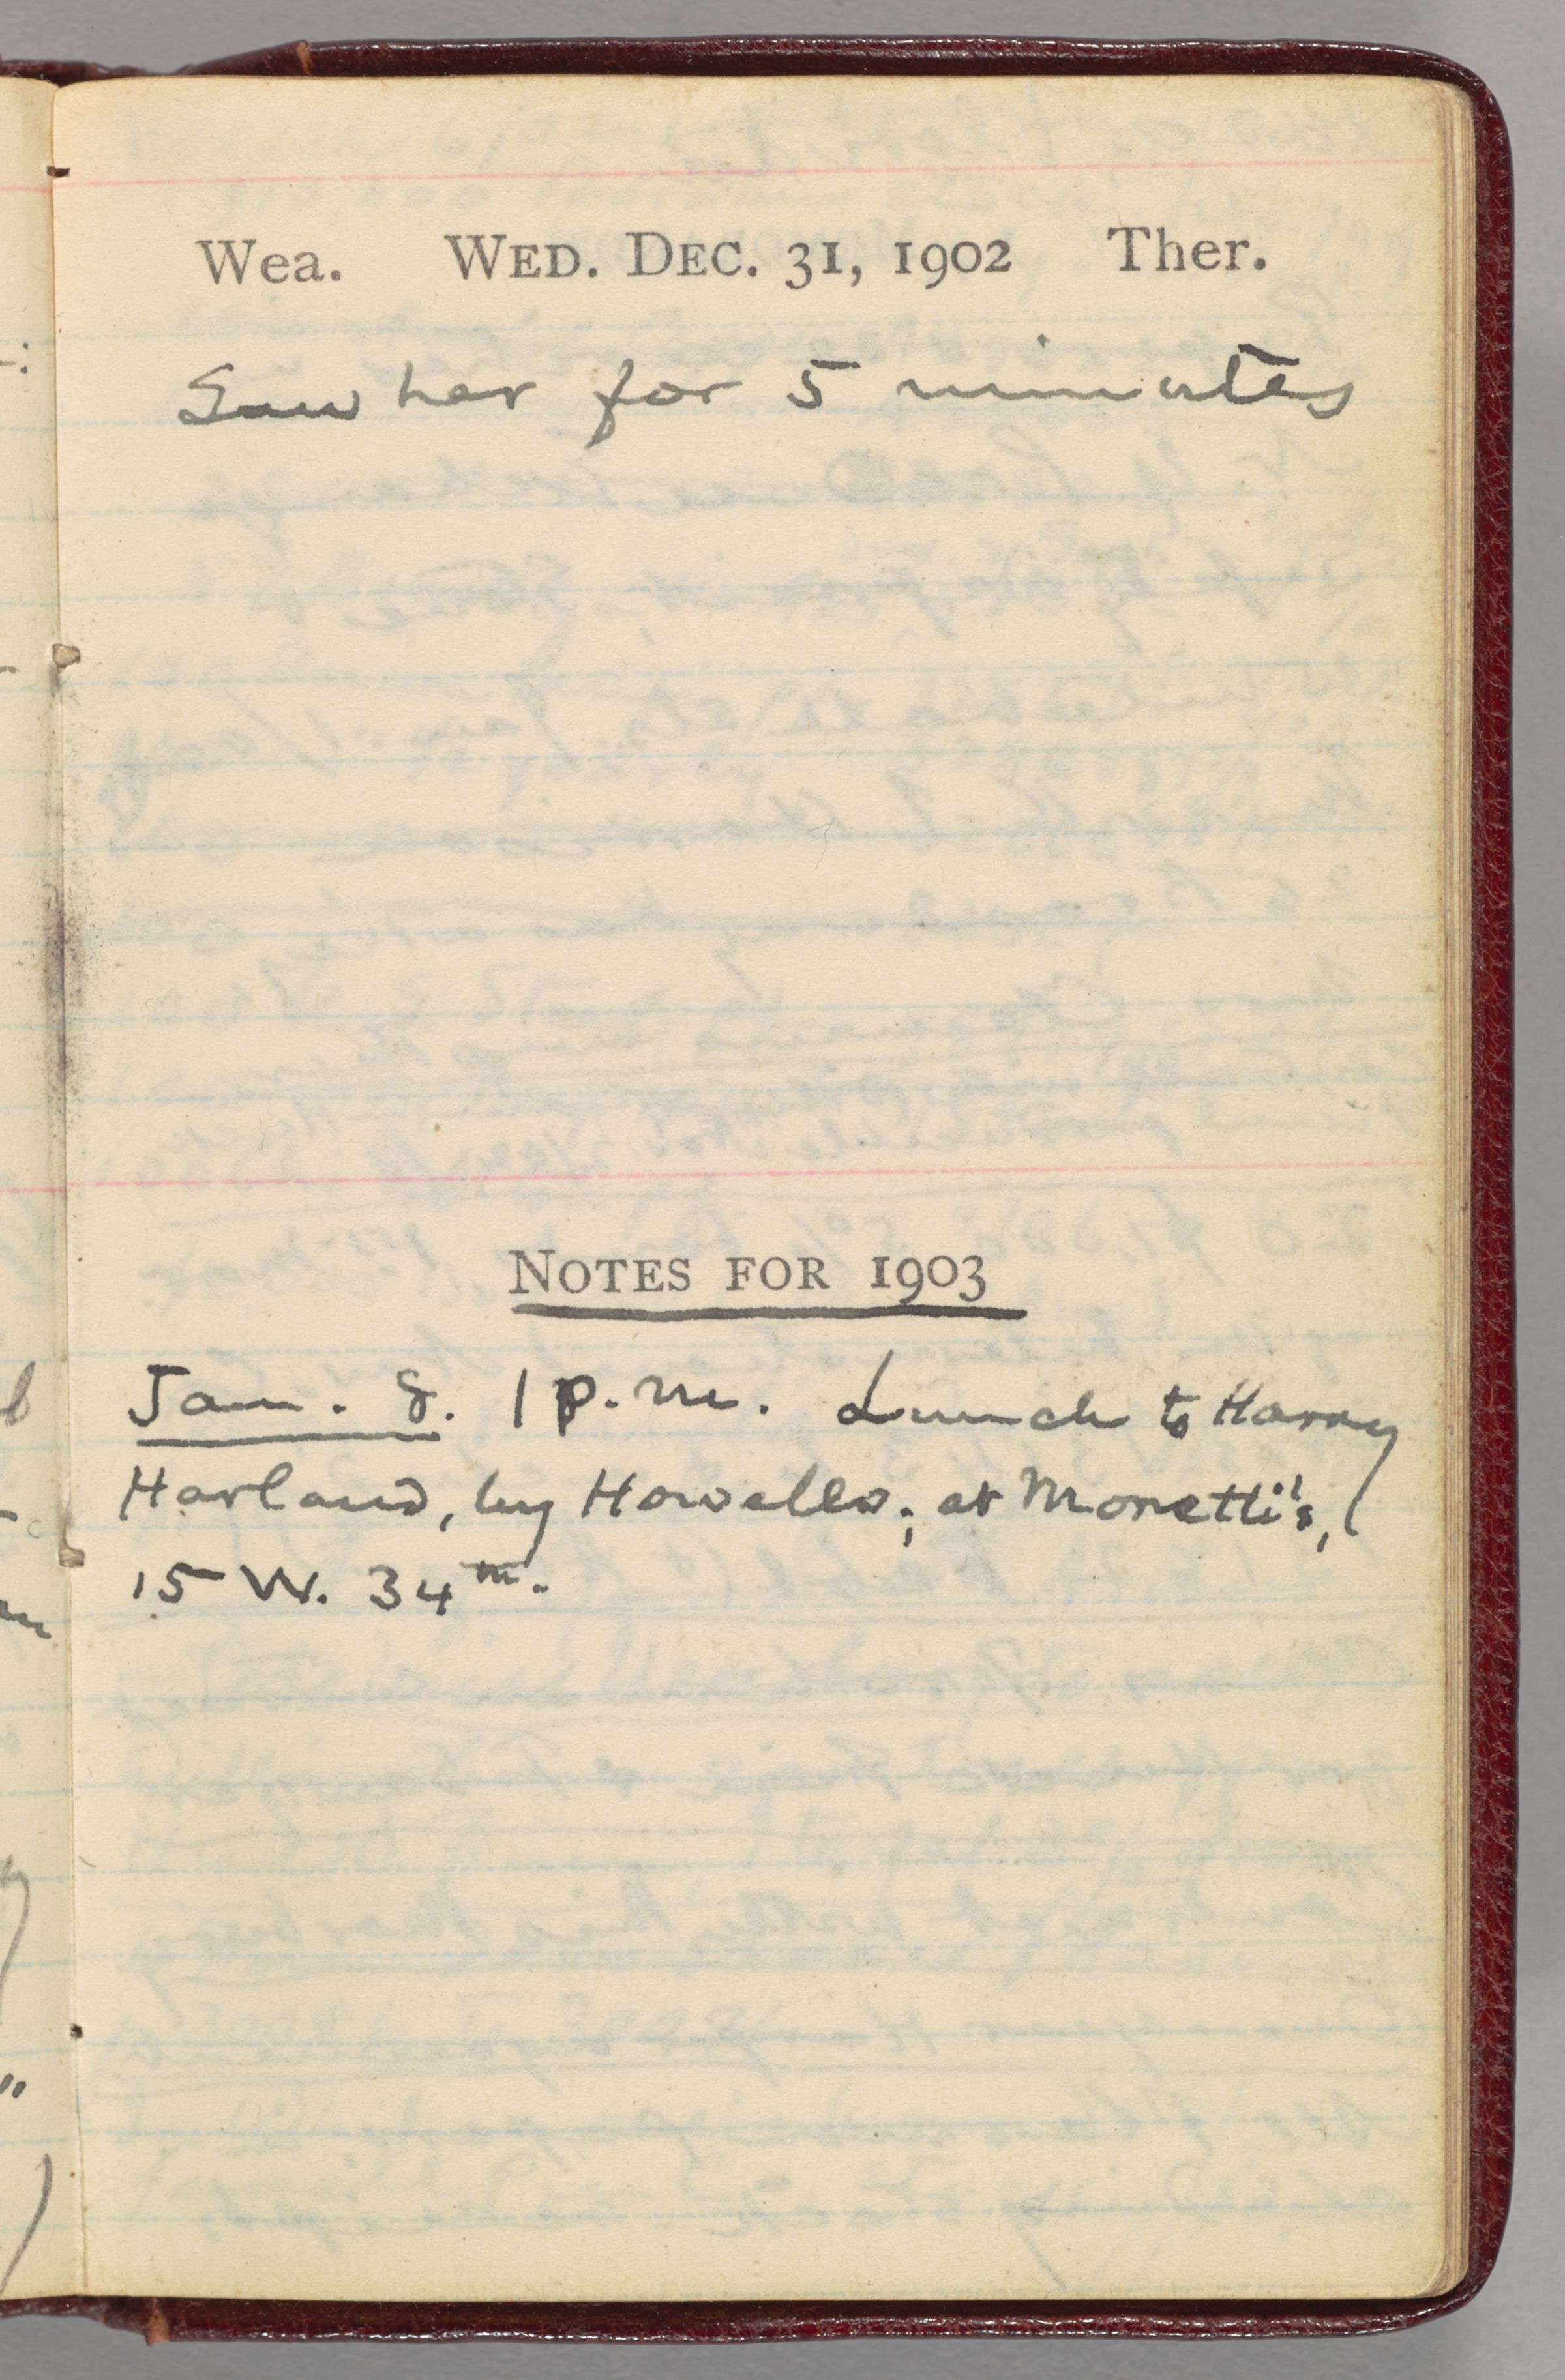 Wea. WED. DEC. 31, 1902 Ther.
Saw her for 5 minutes
NOTES FOR 1903
Jan. 8. 1 p.m. Lunch to Harry
Harland, by Howells; at Monetti's,
15 W. 34th.